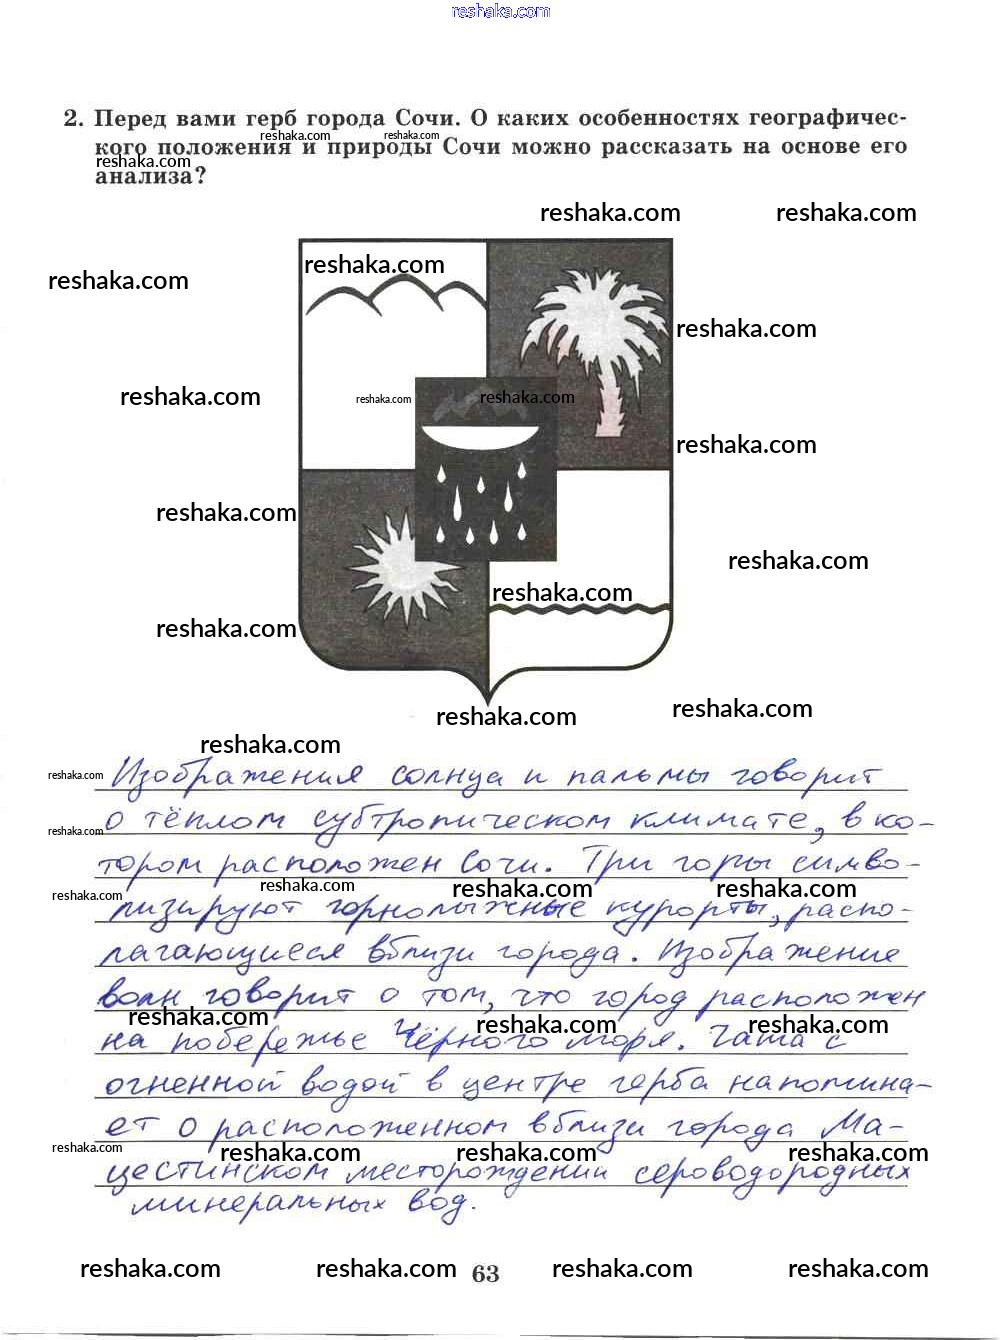 reshaka.com
2. Перед вами герб города Сочи. О каких особенностях географичес-
reshaka.com reshaka.com
кого положения и природы Сочи можно рассказать на основе его
reshaka.com
анализа?
reshaka.com reshaka.com
reshaka.com
reshaka.com
reshaka.com
reshaka.com reshaka.com reshaka.com
reshaka.com
reshaka.com
reshaka.com
reshaka.com
reshaka.com
reshaka.com
reshaka.com
reshaka.com
reshaka.com
Изображения солнца и пальмы говорит
о тёплом субтропическом климате, в ко-
reshaka.com
тором расположен Сочи. Три горы симво-
reshaka.com reshaka.com reshaka.com reshaka.com
лизируют горнолыжные курорты, распо-
лагающиеся вблизи города. Изображение
волн говорит о том, что город расположен
reshaka.com reshaka.com reshaka.com
на побережье Чёрного моря. Чаша с
огненной водой в центре герба напомина-
ет о расположенном вблизи города Ма-
reshaka.com reshaka.com reshaka.com reshaka.com
цестинском месторождении сероводородных
минеральных вод.
reshaka.com reshaka.com 63 reshaka.com reshaka.com